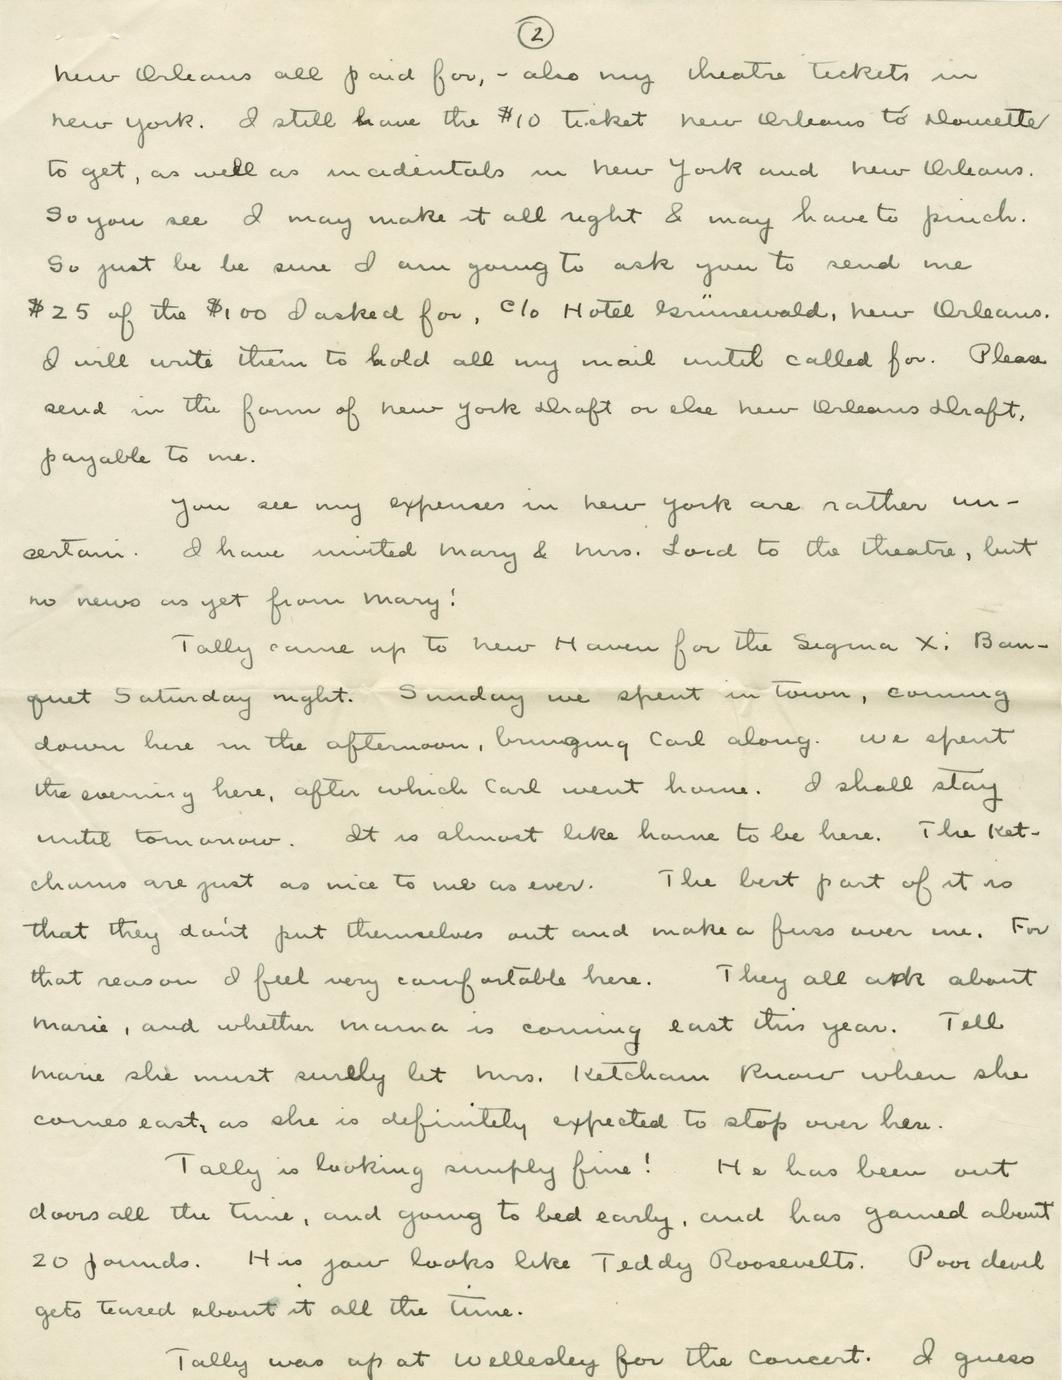 2
New Orleans all paid for, - also my theatre tickets in
New York. I still have the $10 ticket New Orleans to Doucette
to get, as well as incidentals in New York and New Orleans.
So you see I may make it all right & may have to pinch.
So just be be sure I am going to ask you to send me
$25 of the $100 I asked for, c/o Hotel Grünewald, New Orleans.
I will write them to hold all my mail until called for. Please
send in the form of New York Draft or else New Orleans Draft,
payable to me.
You see my expenses in New York are rather un-
certain. I have invited Mary & Mrs. Lord to the theatre, but
no news as yet from Mary!
Tally came up to New Haven for the Sigma Xi Ban-
quet Saturday night. Sunday we spent in town, coming
down here in the afternoon, bringing Carl along. We spent
the evening here, after which Carl went home. I shall stay
until tomorrow. It is almost like home to be here. The Ket-
chams are just as nice to me as ever. The best part of it is
that they don't put themselves out and make a fuss over me. For
that reason I feel very comfortable here. They all ask about
Marie, and whether Mama is coming east this year. Tell
Marie she must surely let Mrs. Ketcham know when she
comes east, as she is definitely expected to stop over here.
Tally is looking simply fine! He has been out
doors all the time, and going to bed early, and has gained about
20 pounds. His jaw looks like Teddy Roosevelts. Poor devil
gets teased about it all the time.
Tally was up at Wellesley for the concert. I guess